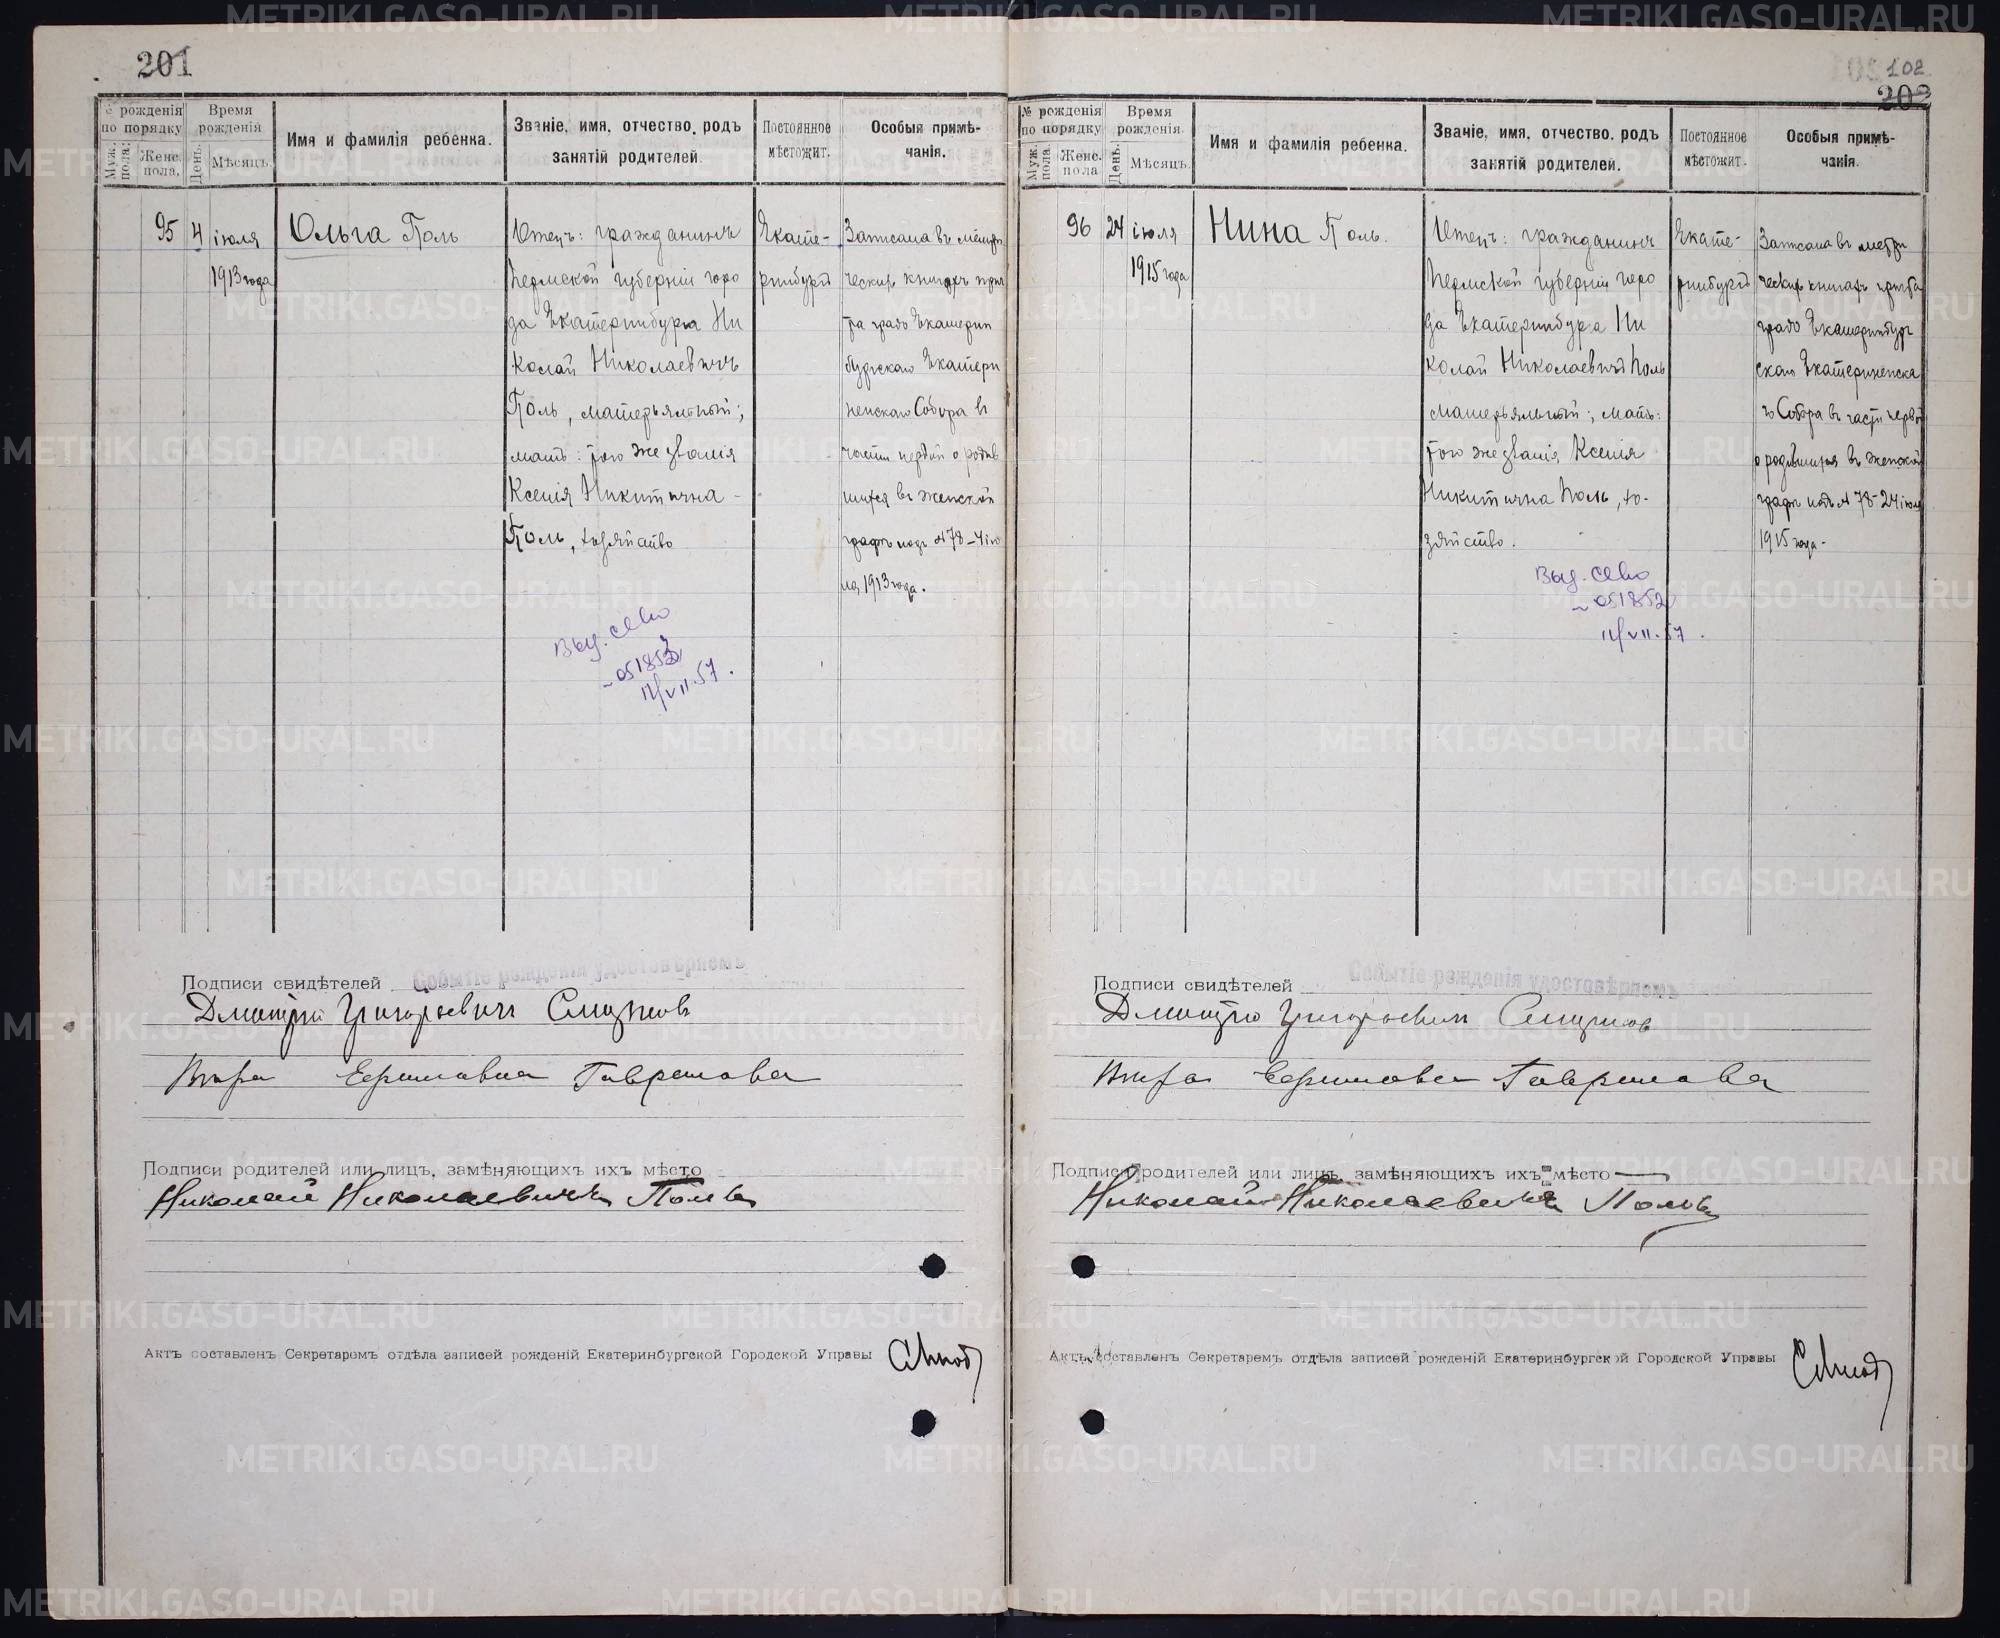 201
№ рожденія по порядку
Муж. пола.
Женс. пола.
Время рожденія
День.
Мѣсяцъ.
Имя и фамилія ребенка.
Званіе, имя, отчество, родъ занятій родителей.
Постоянное мѣстожит.
Особыя примѣчанія.
95
4
іюля
1913 года
Ольга Поль
Отецъ: гражданинъ
Пермской губерніи горо
да Екатеринбурга Ни
колай Николаевичъ
Поль, матерьяльный;
мать: того же званія
Ксенія Никитична
Поль, хозяйство
Екате-
ринбургъ
Записана въ метри
ческих книгахъ прич
та градо Екатерин
бургскаго Екатери
ненскаго Собора въ
части первой о родив
шихся въ женской
графѣ подъ № 78 - 4 ію
ля 1913 года.
Выд. св-во
051853
11/VII-57.
Подписи свидѣтелей
Событіе рожденія удостовѣряемъ
Дмитрій Григорьевич Смирнов
Вѣра Гаврилова
Подписи родителей или лицъ, замѣняющихъ ихъ мѣсто
Николай Николаевичъ Поль
Актъ составленъ Секретаремъ отдѣла записей рожденій Екатеринбургской Городской Управы
102
202
№ рожденія по порядку
Муж. пола.
Женс. пола
Время рожденія.
День.
Мѣсяцъ.
Имя и фамилія ребенка.
Званіе, имя, отчество, родъ занятій родителей.
Постоянное мѣстожит.
Особыя примѣчанія.
96
24
іюля
1915 года
Нина Поль.
Отецъ: гражданинъ
Пермской губерніи горо
да Екатеринбурга Ни
колай Николаевичъ Поль
матерьяльный; мать:
того же званія Ксенія
Никитична Поль, хо-
зяйство.
Екате-
ринбургъ
Записана въ метри
ческихъ книгахъ причта
градо Екатеринбург
скаго Екатериненска
го Собора въ части первой
о родившихся въ женской
графѣ подъ № 78 - 24 іюля
1915 года -
Выд. св-во
051852
11/VII-57.
Подписи свидѣтелей
Событіе рожденія удостовѣряемъ
Дмитрій Григорьевич Смирнов
Вѣра Гаврилова
Подписи родителей или лицъ, замѣняющихъ ихъ мѣсто
Николай Николаевичъ Поль
Актъ составленъ Секретаремъ отдѣла записей рожденій Екатеринбургской Городской Управы
METRIKI.GASO-URAL.RU